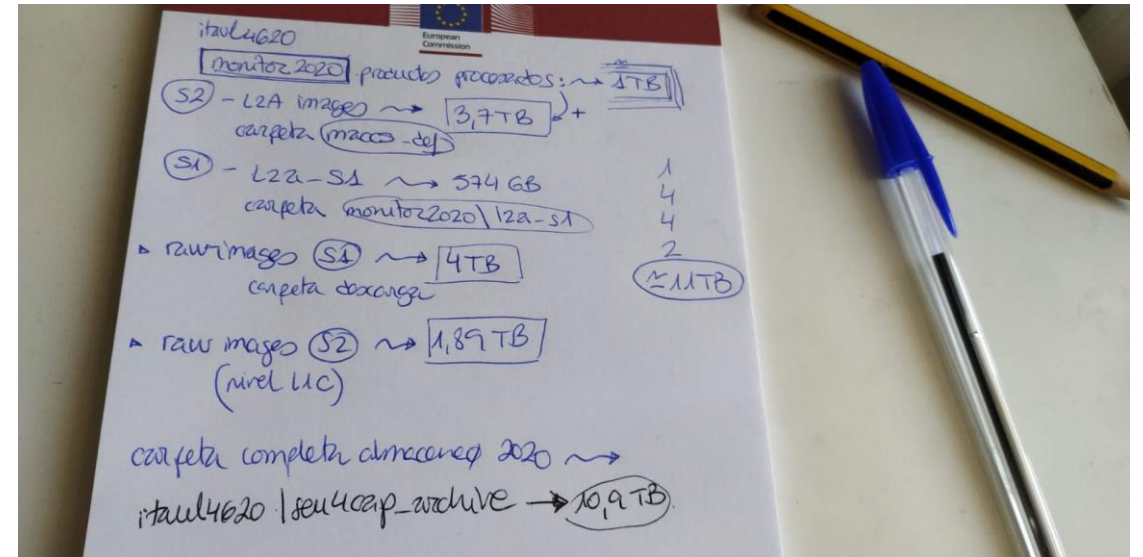 itaul4620
European
Commission
monitor2020 productos procesados: ~> 1TB
S2 - L2A images ~> 3,7TB +
carpeta maccs-def
S1 - L2a-S1 ~> 574 GB
carpeta monitor2020\l2a-s1
1
4
4
2
≃11TB
▸ raw images S1 ~> 4TB
carpeta descarga
▸ raw images S2 ~> 1,89 TB
(nivel L1C)
carpeta completa almacenaje 2020 ~>
itaul4620\sen4cap_archive → 10,9TB